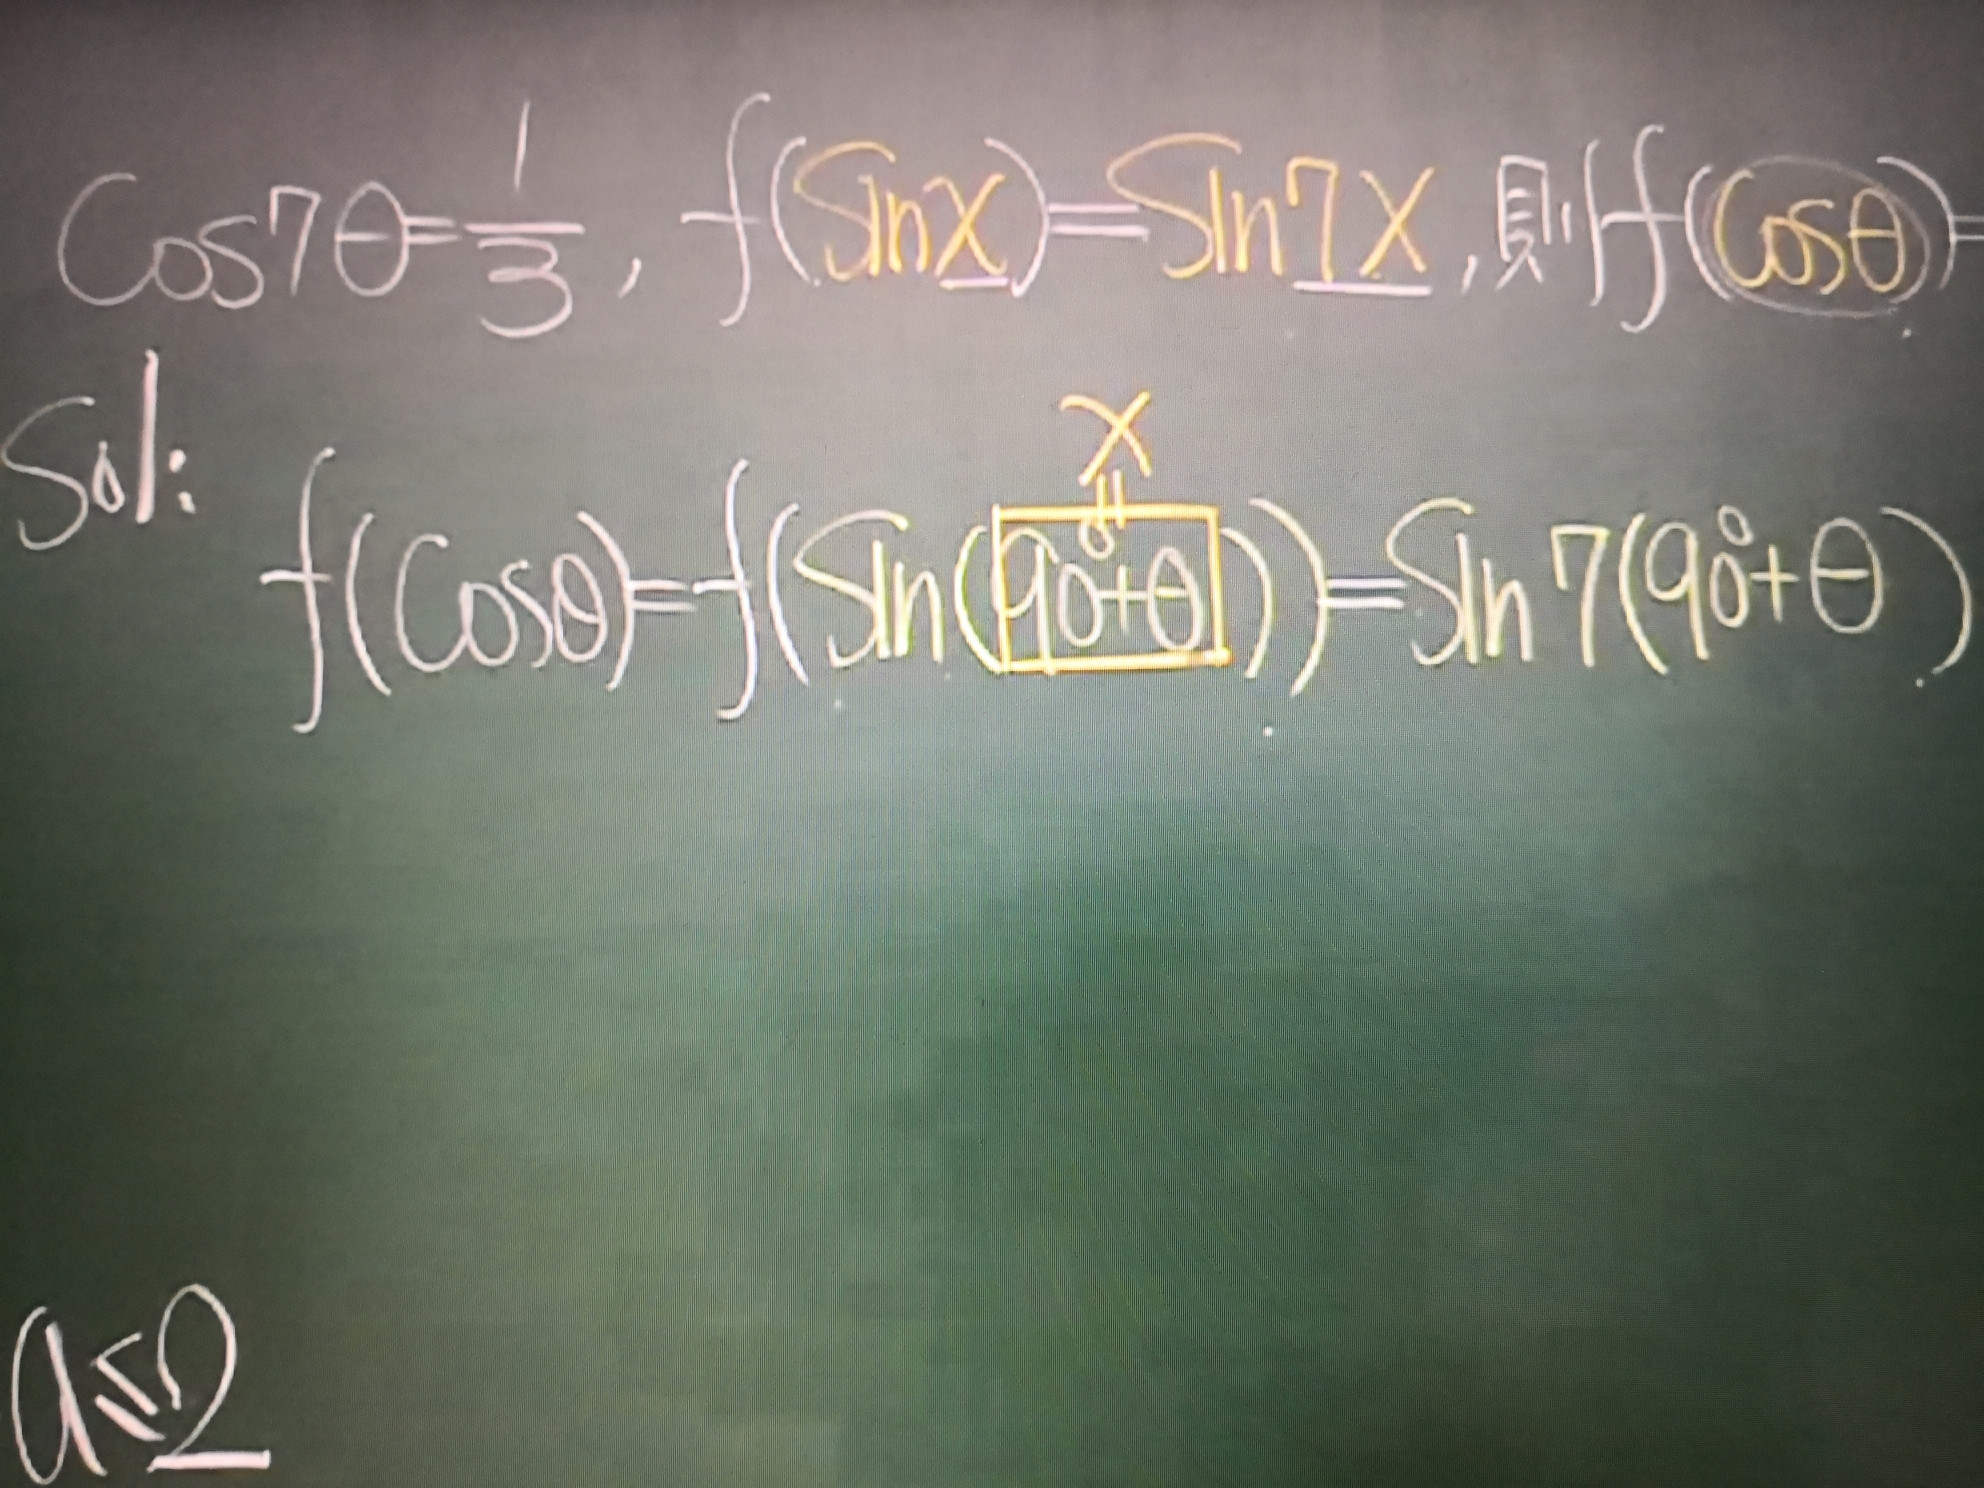 Cos7θ=1/3, f(Sinx)=Sin7x, 則f(Cosθ)=
Sol:
x
=
f(Cosθ)=f(Sin(90°+θ))=Sin7(90°+θ)
a≤2